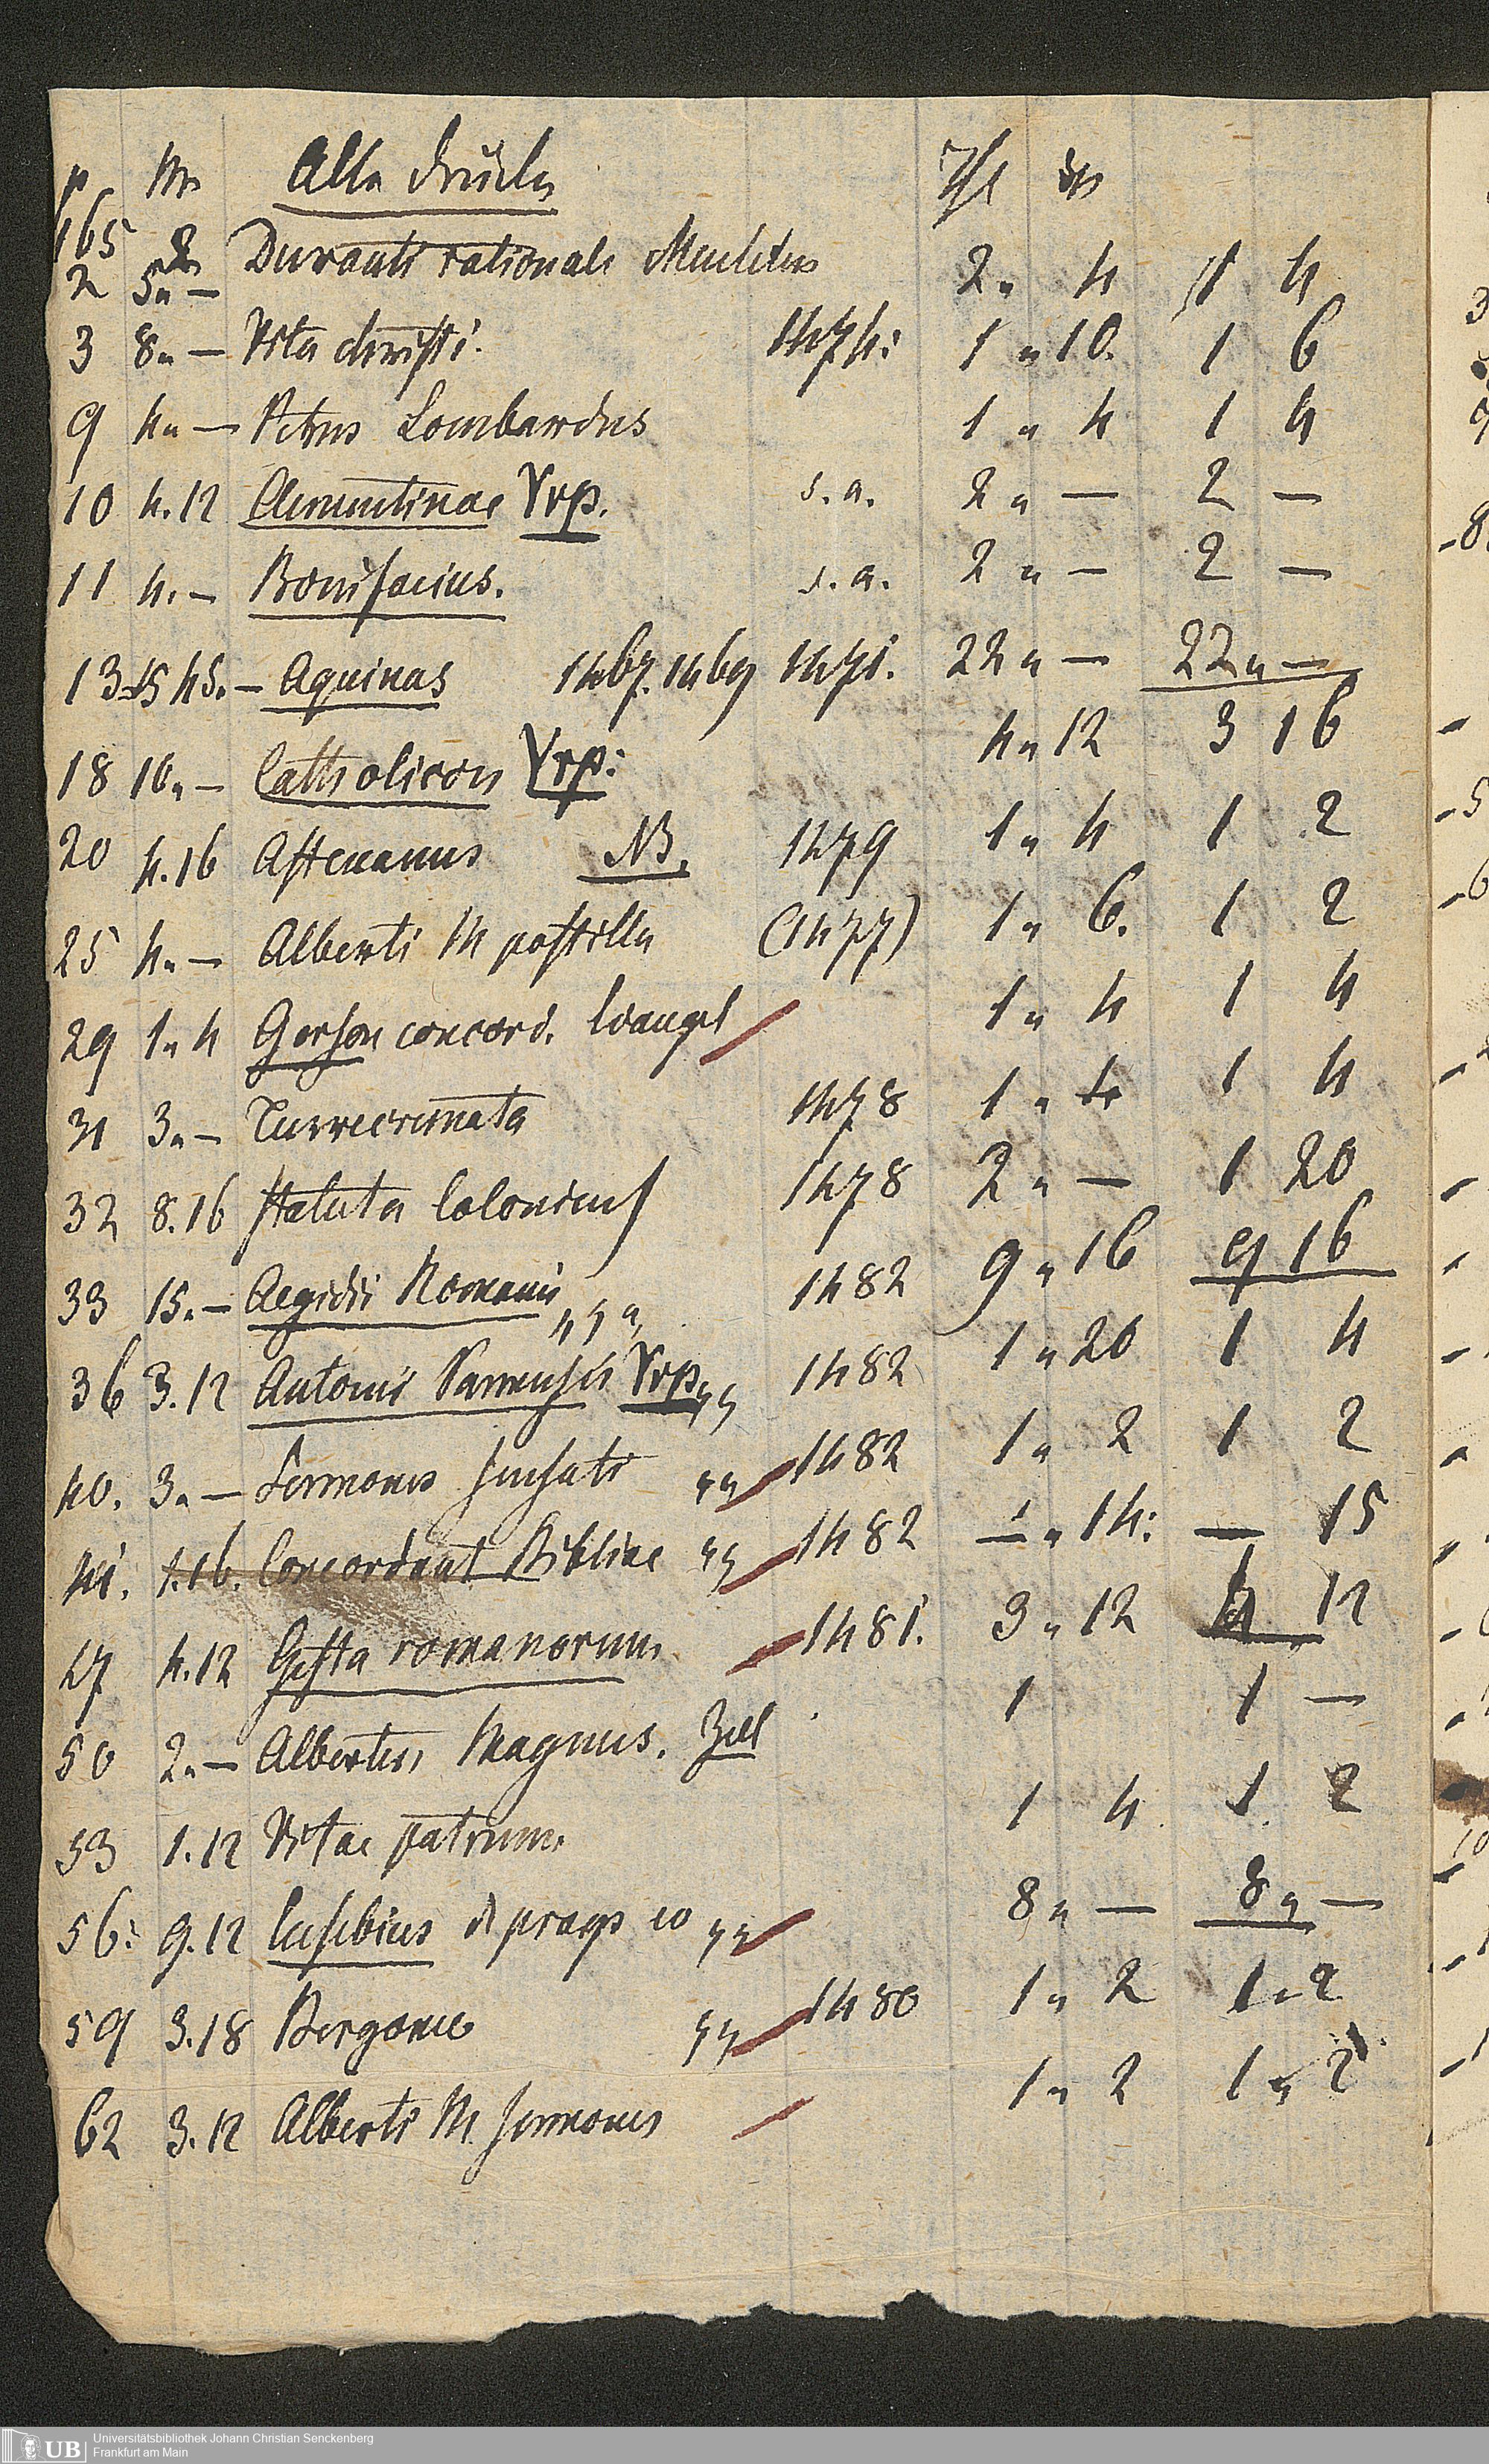 p Nr Alte Drucke
165
2 5„ — Duranti rationale 2„ 4 1 4
3 8„ — Vita christi. 1474: 1„10. 1 6
9 4„ — Petrus Lombardus 1„4 1 4
10 4.12 Clementinae Yrp. s. a. 2„— 2 —
11 4.— Bonifacius. s. a. 2„— 2 —
13 45.— Aquinas 1467. 1469 1471. 22„— 22„—
18 10„— Catholicon Yrp: 4„12 3 16
20 4.16 Astexanus NB. 1479 1„4 1 2
25 4„— Alberti M postilla (1477) 1„6. 1 2
29 1„4 Gerson concord. Evangel 1„4 1 4
31 3„— Turrecremata 1478 1„4 1 4
32 8.16 Statuta 1478 2„— 1 20
33 15„— Aegidii Romani 1482 9„16 9 16
36 3.12 Antonii Parmensis Yrp 1482 1„20 1 4
40. 3„— Sermones Susati 1482 1„2 1 2
41. 1.16. Concordant Bibliae 1482 —„14: — 15
47 4.12 Gesta romanorum 1481. 3„12 4 12
50 2„— Albertus Magnus. Zell 1 1 —
53 1.12 Vitae patrum 1 4 1 2
56: 9.12 Eusebius d praep ev 8„— 8„—
59 3.18 Bergomo 1480 1„2 1„2
62 3.12 Alberti M. sermones 1„2 1„2
UB Universitätsbibliothek Johann Christian Senckenberg
Frankfurt am Main